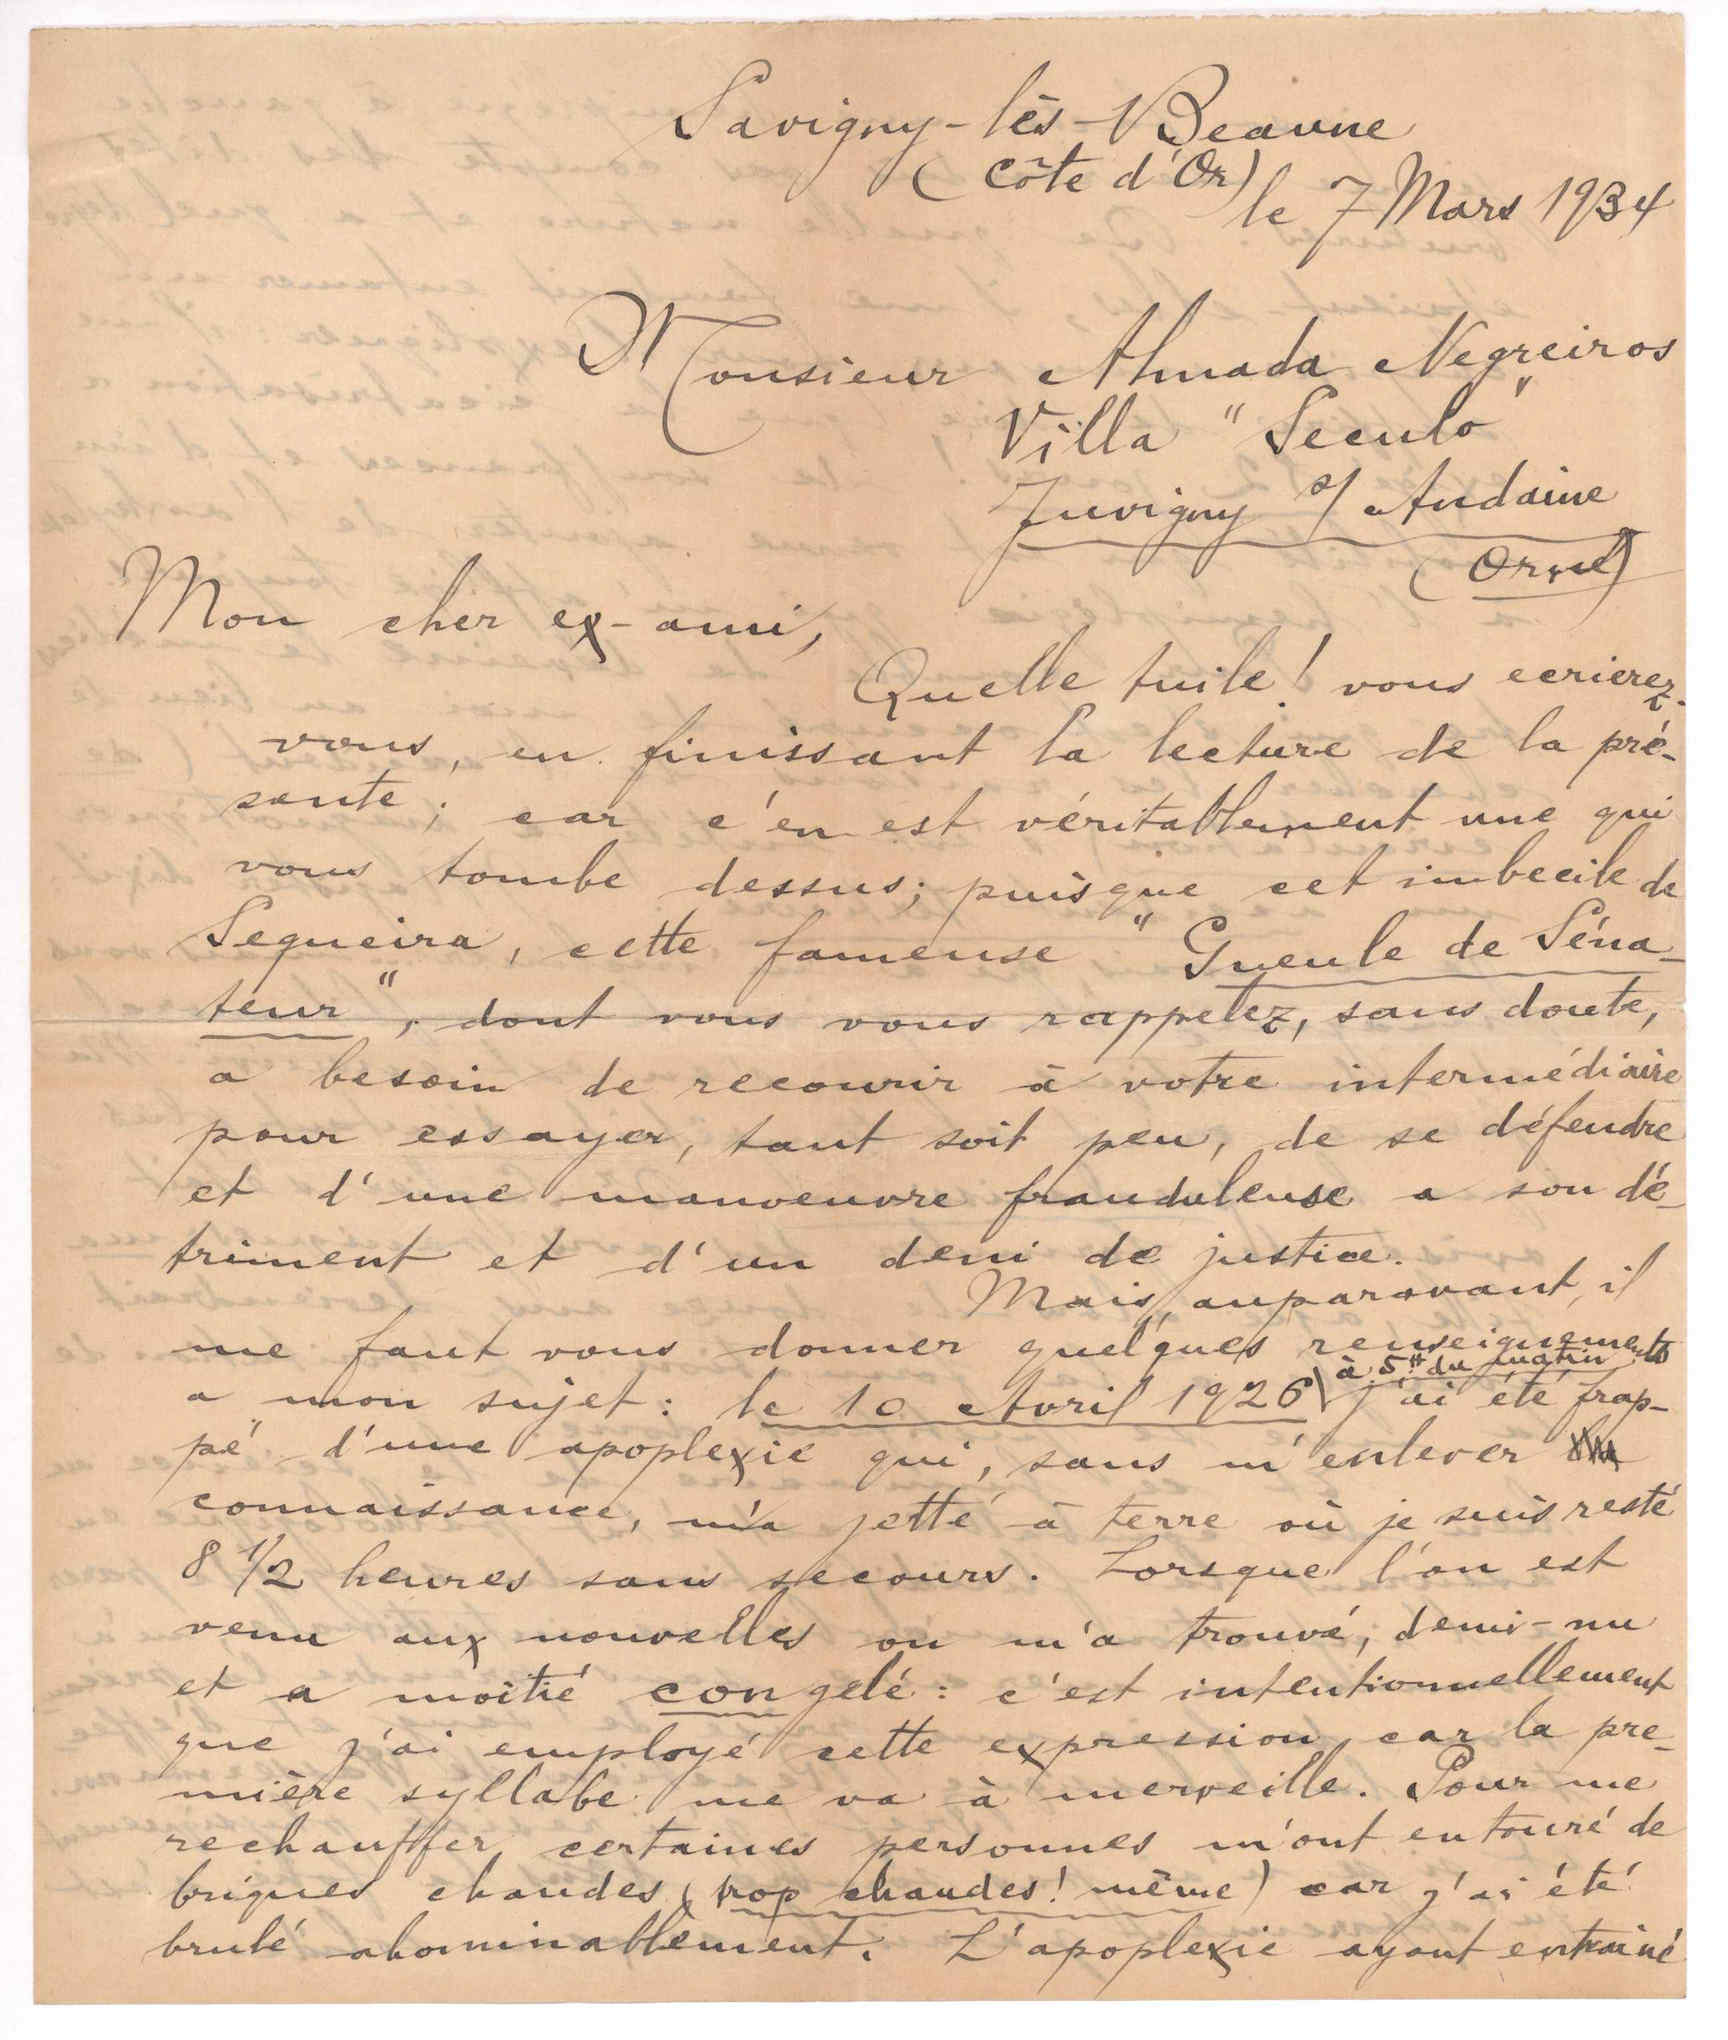 Savigny-lès-Beaune
(Côte d'Or)
le 7 Mars 1934
Monsieur Almada Negreiros
Villa "Seculo"
Juvigny s/ Andaine
(Orne)
Mon cher ex-ami,
Quelle tuile! vous ecrierez-
vous, en finissant la lecture de la pré-
sente; car c'en est véritablement une qui
vous tombe dessus; puisque cet imbecile de
Sequeira, cette fameuse "Gueule de Séna-
teur", dont vous vous rappelez, sans doute,
a besoin de recourir à votre intermédiaire
pour essayer, tant soit peu, de se défendre
et d'une manoeuvre frauduleuse a son dé-
triment et d'un deni de justice.
Mais, auparavant, il
me faut vous donner quelques renseignements
à 5H du matin
a mon sujet: le 10 Avril 1926 j'ai été frap-
pé d'une apoplexie qui, sans m'enlever
connaissance, m'a jetté à terre où je suis resté
8 1/2 heures sans secours. Lorsque l'on est
venu aux nouvelles on m'a trouvé, demi-nu
et a moitié congelé: c'est intentionnellement
que j'ai employé cette expression, car la pre-
mière syllabe me va à merveille. Pour me
rechauffer, certaines personnes m'ont entouré de
briques chaudes (trop chaudes! même) car j'ai été
brulé abominablement. L'apoplexie ayant entrainé